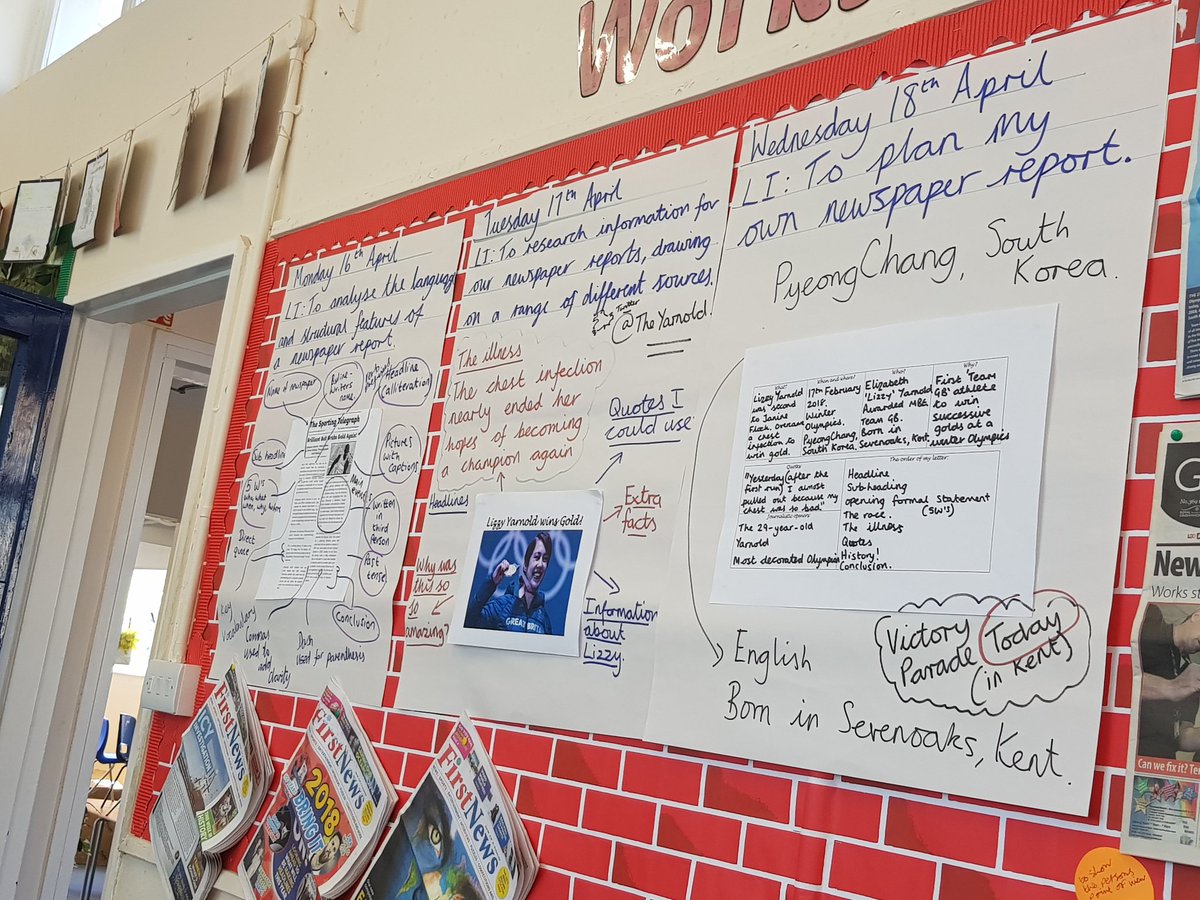 Work
Monday 16th April
LI: To analyse the language
and structural features of
a newspaper report.
Name of newspaper
Byline -
writers
name
Headline
(alliteration)
The Sporting Telegraph
Brilliant Brit Broke Gold Again!
Sub headline
Pictures
with
captions
5 W's
who, what,
when, why, where
Main
event
written
in third
person
Direct
quote
Past
tense
Conclusion
Key
Vocabulary
Commas
used to
add
clarity
Dash
used for parenthesis
Tuesday 17th April
LI: To research information for
our newspaper reports, drawing
on a range of different sources.
Twitter
@TheYarnold!
The illness
The chest infection
nearly ended her
hopes of becoming
a champion again
Quotes I
could use
Headlines
Extra
facts
Lizzy Yarnold wins Gold!
GREAT BRIT
Why was
this so
so
amazing?
Information
about
Lizzy.
Wednesday 18th April
LI: To plan my
own newspaper report.
PyeongChang, South
Korea.
What?
Lizzy Yarnold
was second
to Janine
Flock. Overcame
a chest
infection to
win gold.
When and where?
17th February
2018.
Winter
Olympics.
PyeongChang,
South Korea.
Who?
Elizabeth
'Lizzy' Yarnold
Awarded MBE
Team GB.
Born in
Sevenoaks, Kent
Why?
First 'Team
GB' athlete
to win
successive
golds at a
winter Olympics
Quotes
"Yesterday (after the
first run) I almost
pulled out because my
chest was so bad."
Journalistic openers
The 29-year-old
Yarnold
Most decorated Olympian
The order of my letter:
Headline
Subheading
opening formal statement
(5W's)
The race.
The illness
Quotes
History!
Conclusion.
Victory
Parade
Today
(in Kent)
English
Born in Sevenoaks, Kent.
FirstNews
FirstNews
2018
BRING IT
FirstNews
G
New
Works st
Can we fix it? Te
to show
the persons
point of view